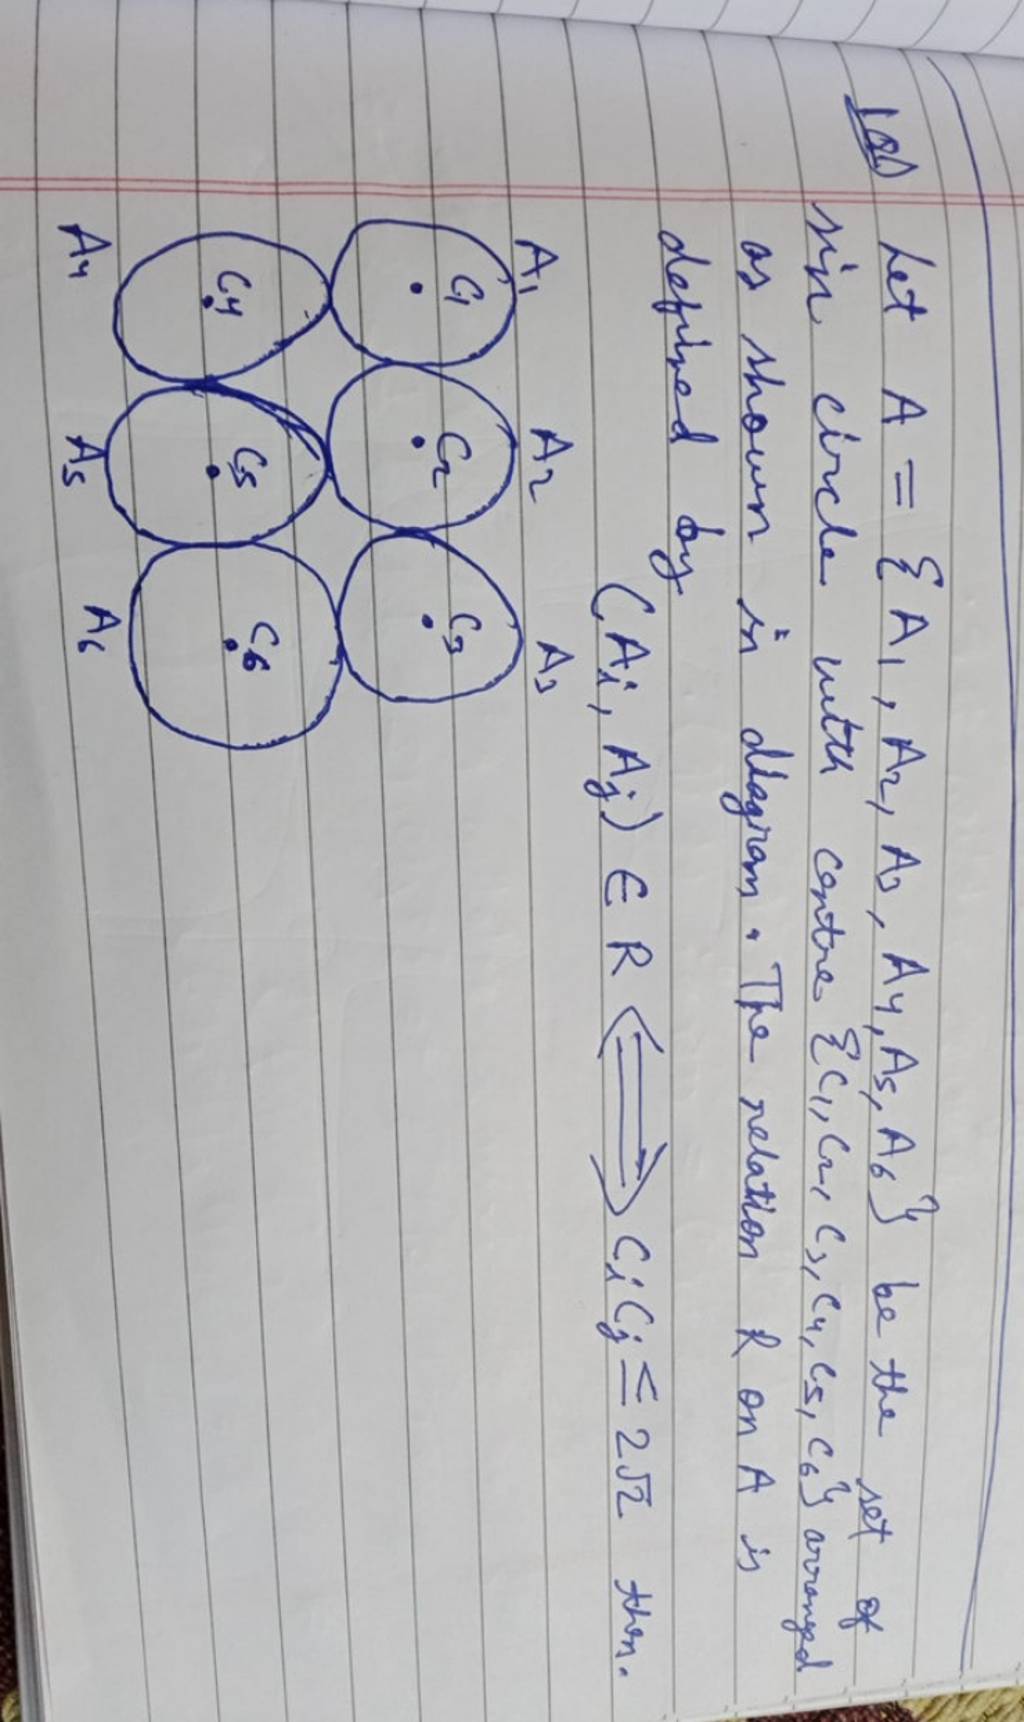 101) Let A = {A1, A2, A3, A4, A5, A6} be the set of
six circle with centre {C1, C2, C3, C4, C5, C6} arranged
as shown in diagram. The relation R on A is
defined by
(Ai, Aj) ∈ R ⟺ CiCj ≤ 2√2 then.
A1 A2 A3
C1 C2 C3
C4 C5 C6
A4 A5 A6